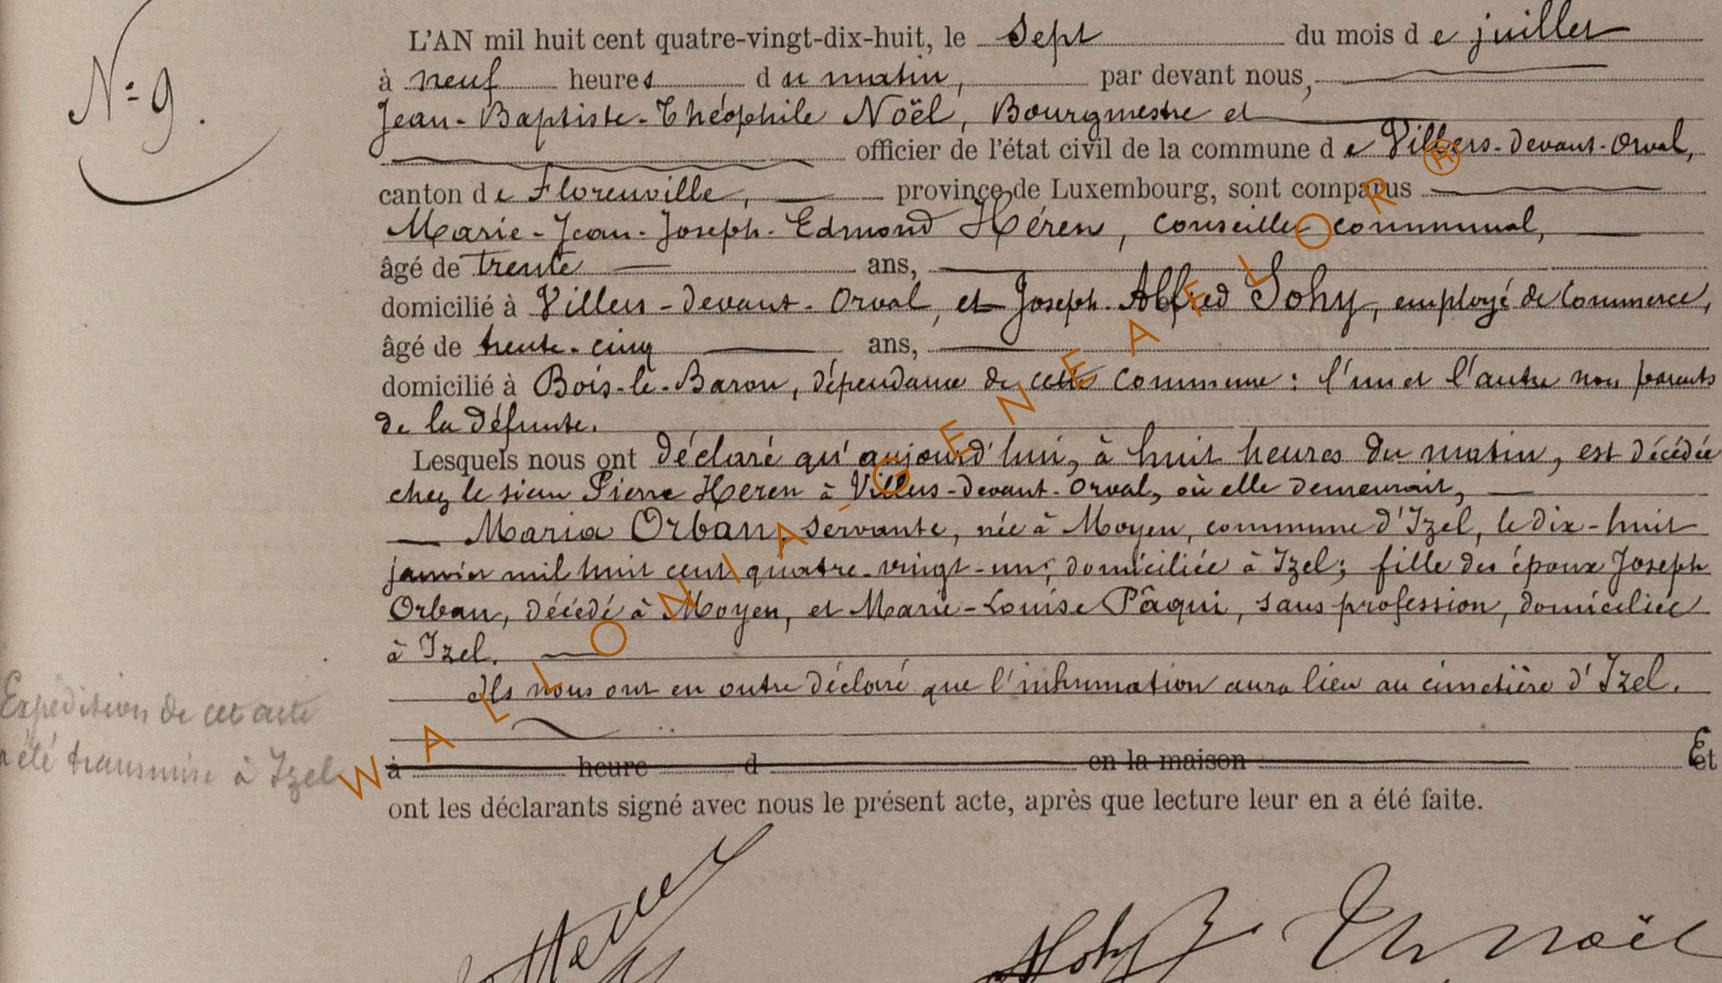 L'AN mil huit cent quatre-vingt-dix-huit, le sept du mois de juillet
N° 9.
à neuf heures du matin, par devant nous,
Jean-Baptiste-Théophile Noël, Bourgmestre et
officier de l'état civil de la commune de Villers-devant-Orval,
canton de Florenville, province de Luxembourg, sont comparus
Marie-Jean-Joseph-Edmond Héren, conseiller communal,
âgé de trente ans,
domicilié à Villers-devant-Orval, et Joseph-Alfred Sohy, employé de commerce,
âgé de trente-cinq ans,
domicilié à Bois-le-Baron, dépendance de cette commune : l'un et l'autre non parents
de la défunte.
Lesquels nous ont déclaré qu'aujourd'hui, à huit heures du matin, est décédée
chez le sieur Pierre Heren à Villers-devant-Orval, où elle demeurait,
Maria Orban, servante, née à Moyen, commune d'Izel, le dix-huit
janvier mil huit cent quatre-vingt-un, domiciliée à Izel; fille des époux Joseph
Orban, décédé à Moyen, et Marie-Louise Pâqui, sans profession, domiciliée
à Izel.
Ils nous ont en outre déclaré que l'inhumation aura lieu au cimetière d'Izel.
Expédition de cet acte
a été transmise à Izel
à heure d en la maison Et
ont les déclarants signé avec nous le présent acte, après que lecture leur en a été faite.
Sohy Th Noël
WALLONIA-GENEAFLOR®